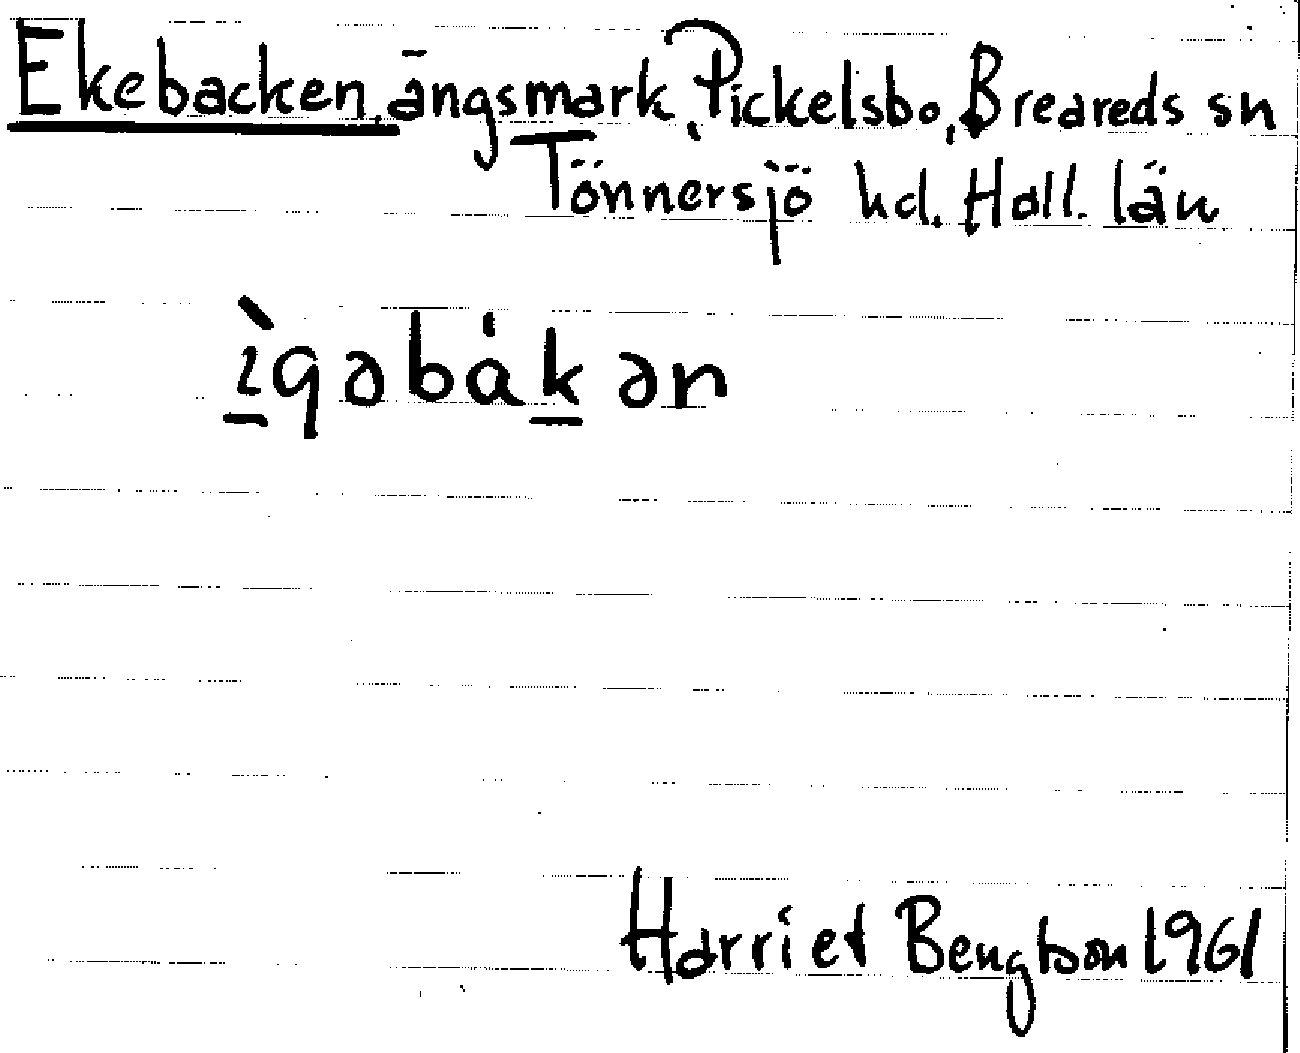 Ekebacken, ängsmark, Pickelsbo, Breareds sn
Tönnersjö hd. Hall. län
ı̀gəbákən
Harriet Bengtson 1961